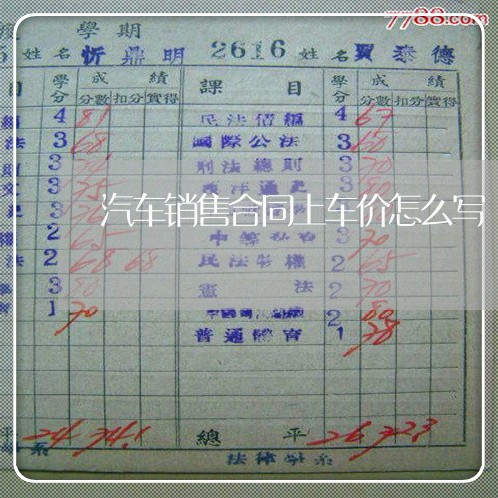 7788.com
學期
姓名 忻鼎明 2616 姓名 賈泰德
目 學分 成績 課目 學分 成績
分數 扣分 實得 分數 扣分 實得
4 81 民法債編 4 67
法 3 68 國際公法 3 60
3 刑法總則 3 70
3 75 西洋通史 3 80
汽车销售合同上车价怎么写
2 65 3 70
法 2 68 68 民法物權 2 65
3 80 憲法 2 70
1 70 2 80
普通體育 1 78
平 24 74.1 總平 26 72.3
系 法律學系